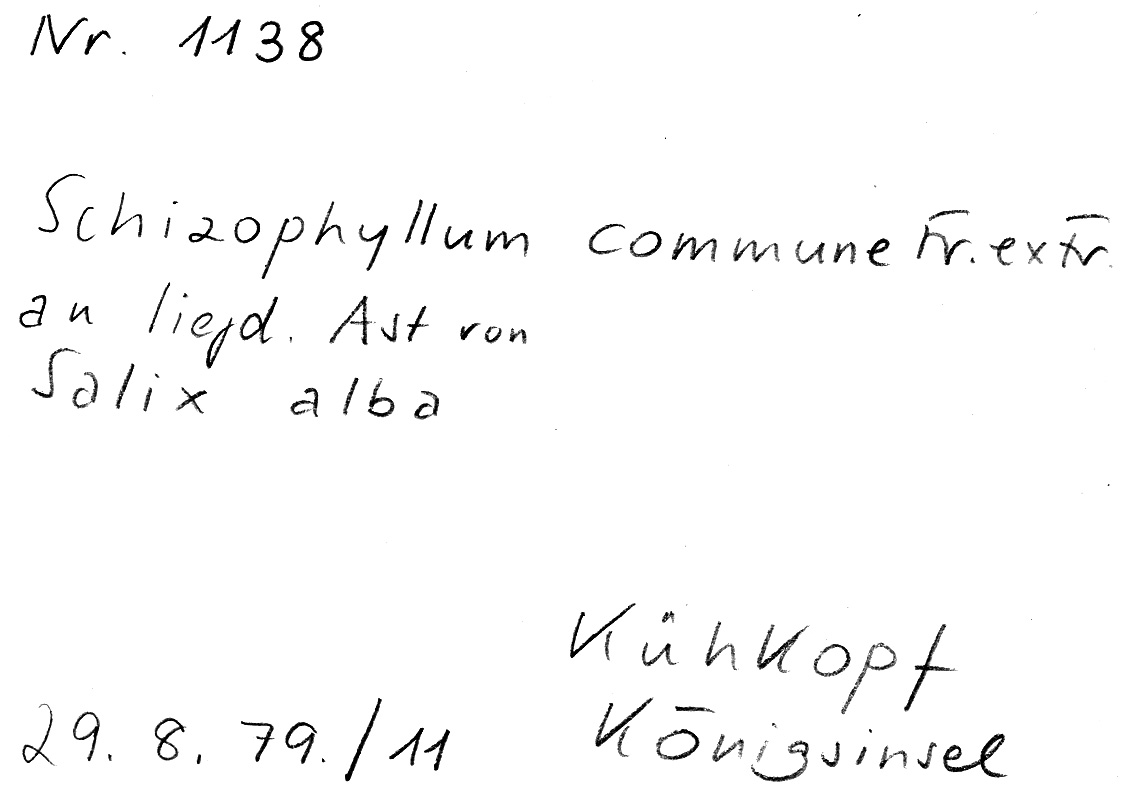 Nr. 1138
Schizophyllum commune Fr. ex Fr.
an liegd. Ast von
Salix alba
Kühkopf
29. 8. 79. / 11 Königsinsel